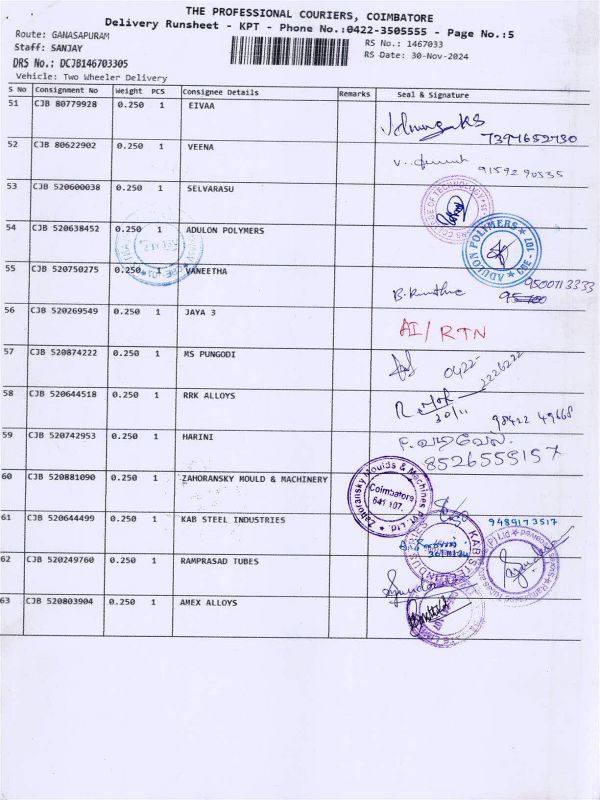 THE PROFESSIONAL COURIERS, COIMBATORE
Delivery Runsheet - KPT - Phone No.:0422-3505555 - Page No.:5
Route: GANASAPURAM
Staff: SANJAY
RS No.: 1467033
DRS No.: DCJB146703305
RS Date: 30-Nov-2024
Vehicle: Two Wheeler Delivery
S No Consignment No Weight PCS Consignee Details Remarks Seal & Signature
51 CJB 80779928 0.250 1 EIVAA
7397652730
52 CJB 80622902 0.250 1 VEENA
9159290535
53 CJB 520600038 0.250 1 SELVARASU
54 CJB 520638452 0.250 1 ADULON POLYMERS
ADULON POLYMERS
55 CJB 520750275 0.250 1 VANEETHA
9500713333
56 CJB 520269549 0.250 1 JAYA 3
AI/RTN
57 CJB 520874222 0.250 1 MS PUNGODI
0422-2226222
58 CJB 520644518 0.250 1 RRK ALLOYS
30/11 98422 49668
59 CJB 520742953 0.250 1 HARINI
8526555157
60 CJB 520881090 0.250 1 ZAHORANSKY MOULD & MACHINERY
Zahoransky Moulds & Machines Pvt Ltd.
Coimbatore
641 107.
61 CJB 520644499 0.250 1 KAB STEEL INDUSTRIES
9489173517
62 CJB 520249760 0.250 1 RAMPRASAD TUBES
63 CJB 520803904 0.250 1 AMEX ALLOYS